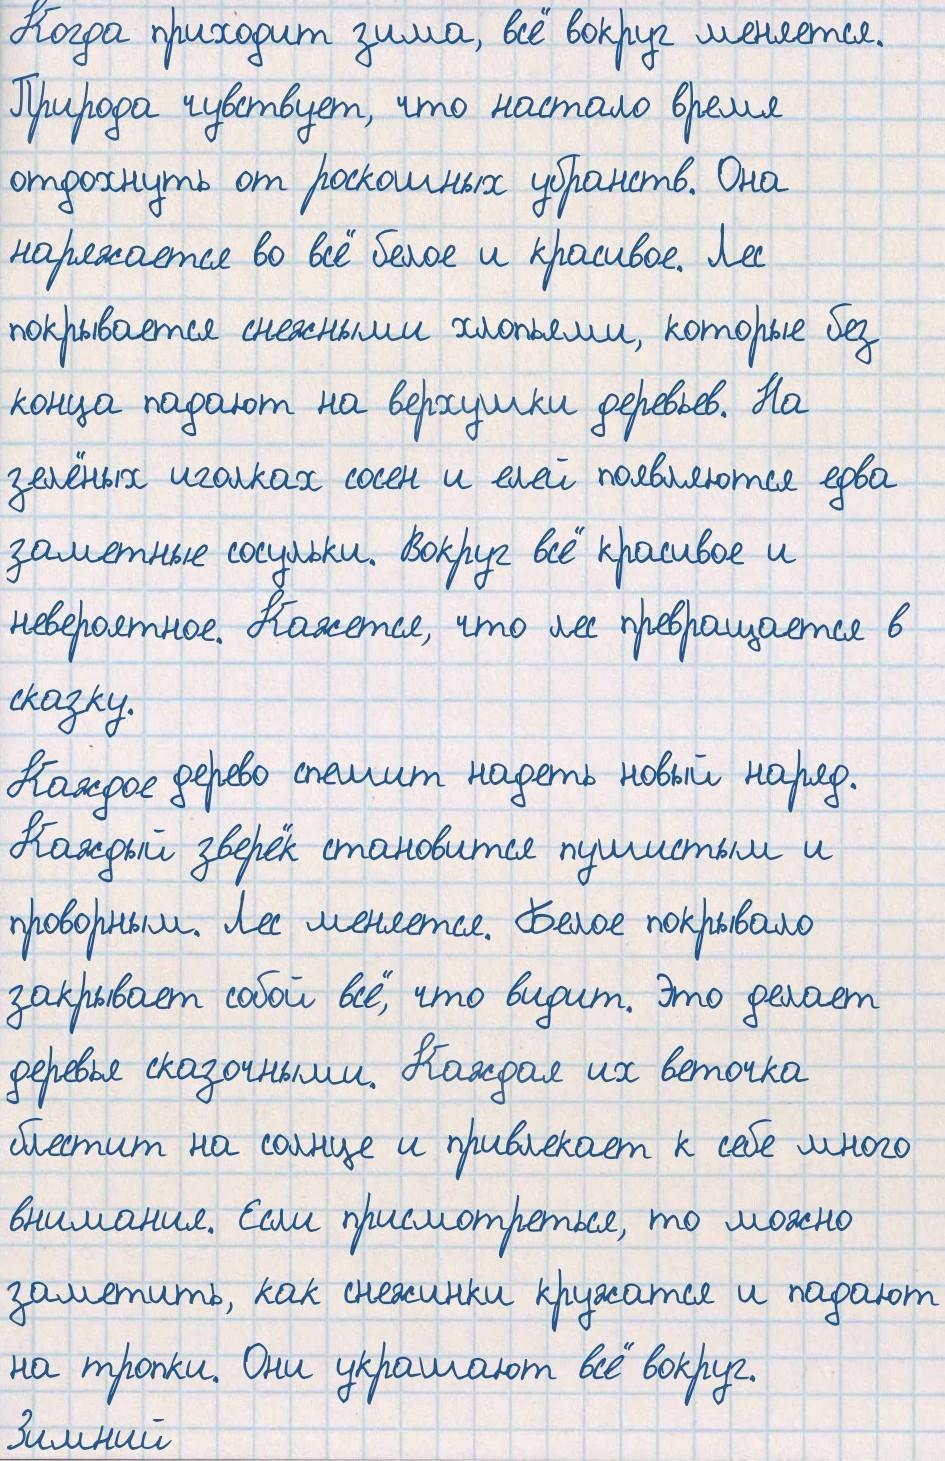 Когда приходит зима, всё вокруг меняется.
Природа чувствует, что настало время
отдохнуть от роскошных убранств. Она
наряжается во всё белое и красивое. Лес
покрывается снежными хлопьями, которые без
конца падают на верхушки деревьев. На
зелёных иголках сосен и елей появляются едва
заметные сосульки. Вокруг всё красивое и
невероятное. Кажется, что лес превращается в
сказку.
Каждое дерево спешит надеть новый наряд.
Каждый зверёк становится пушистым и
проворным. Лес меняется. Белое покрывало
закрывает собой всё, что видит. Это делает
деревья сказочными. Каждая их веточка
блестит на солнце и привлекает к себе много
внимания. Если присмотреться, то можно
заметить, как снежинки кружатся и падают
на тропки. Они украшают всё вокруг.
Зимний